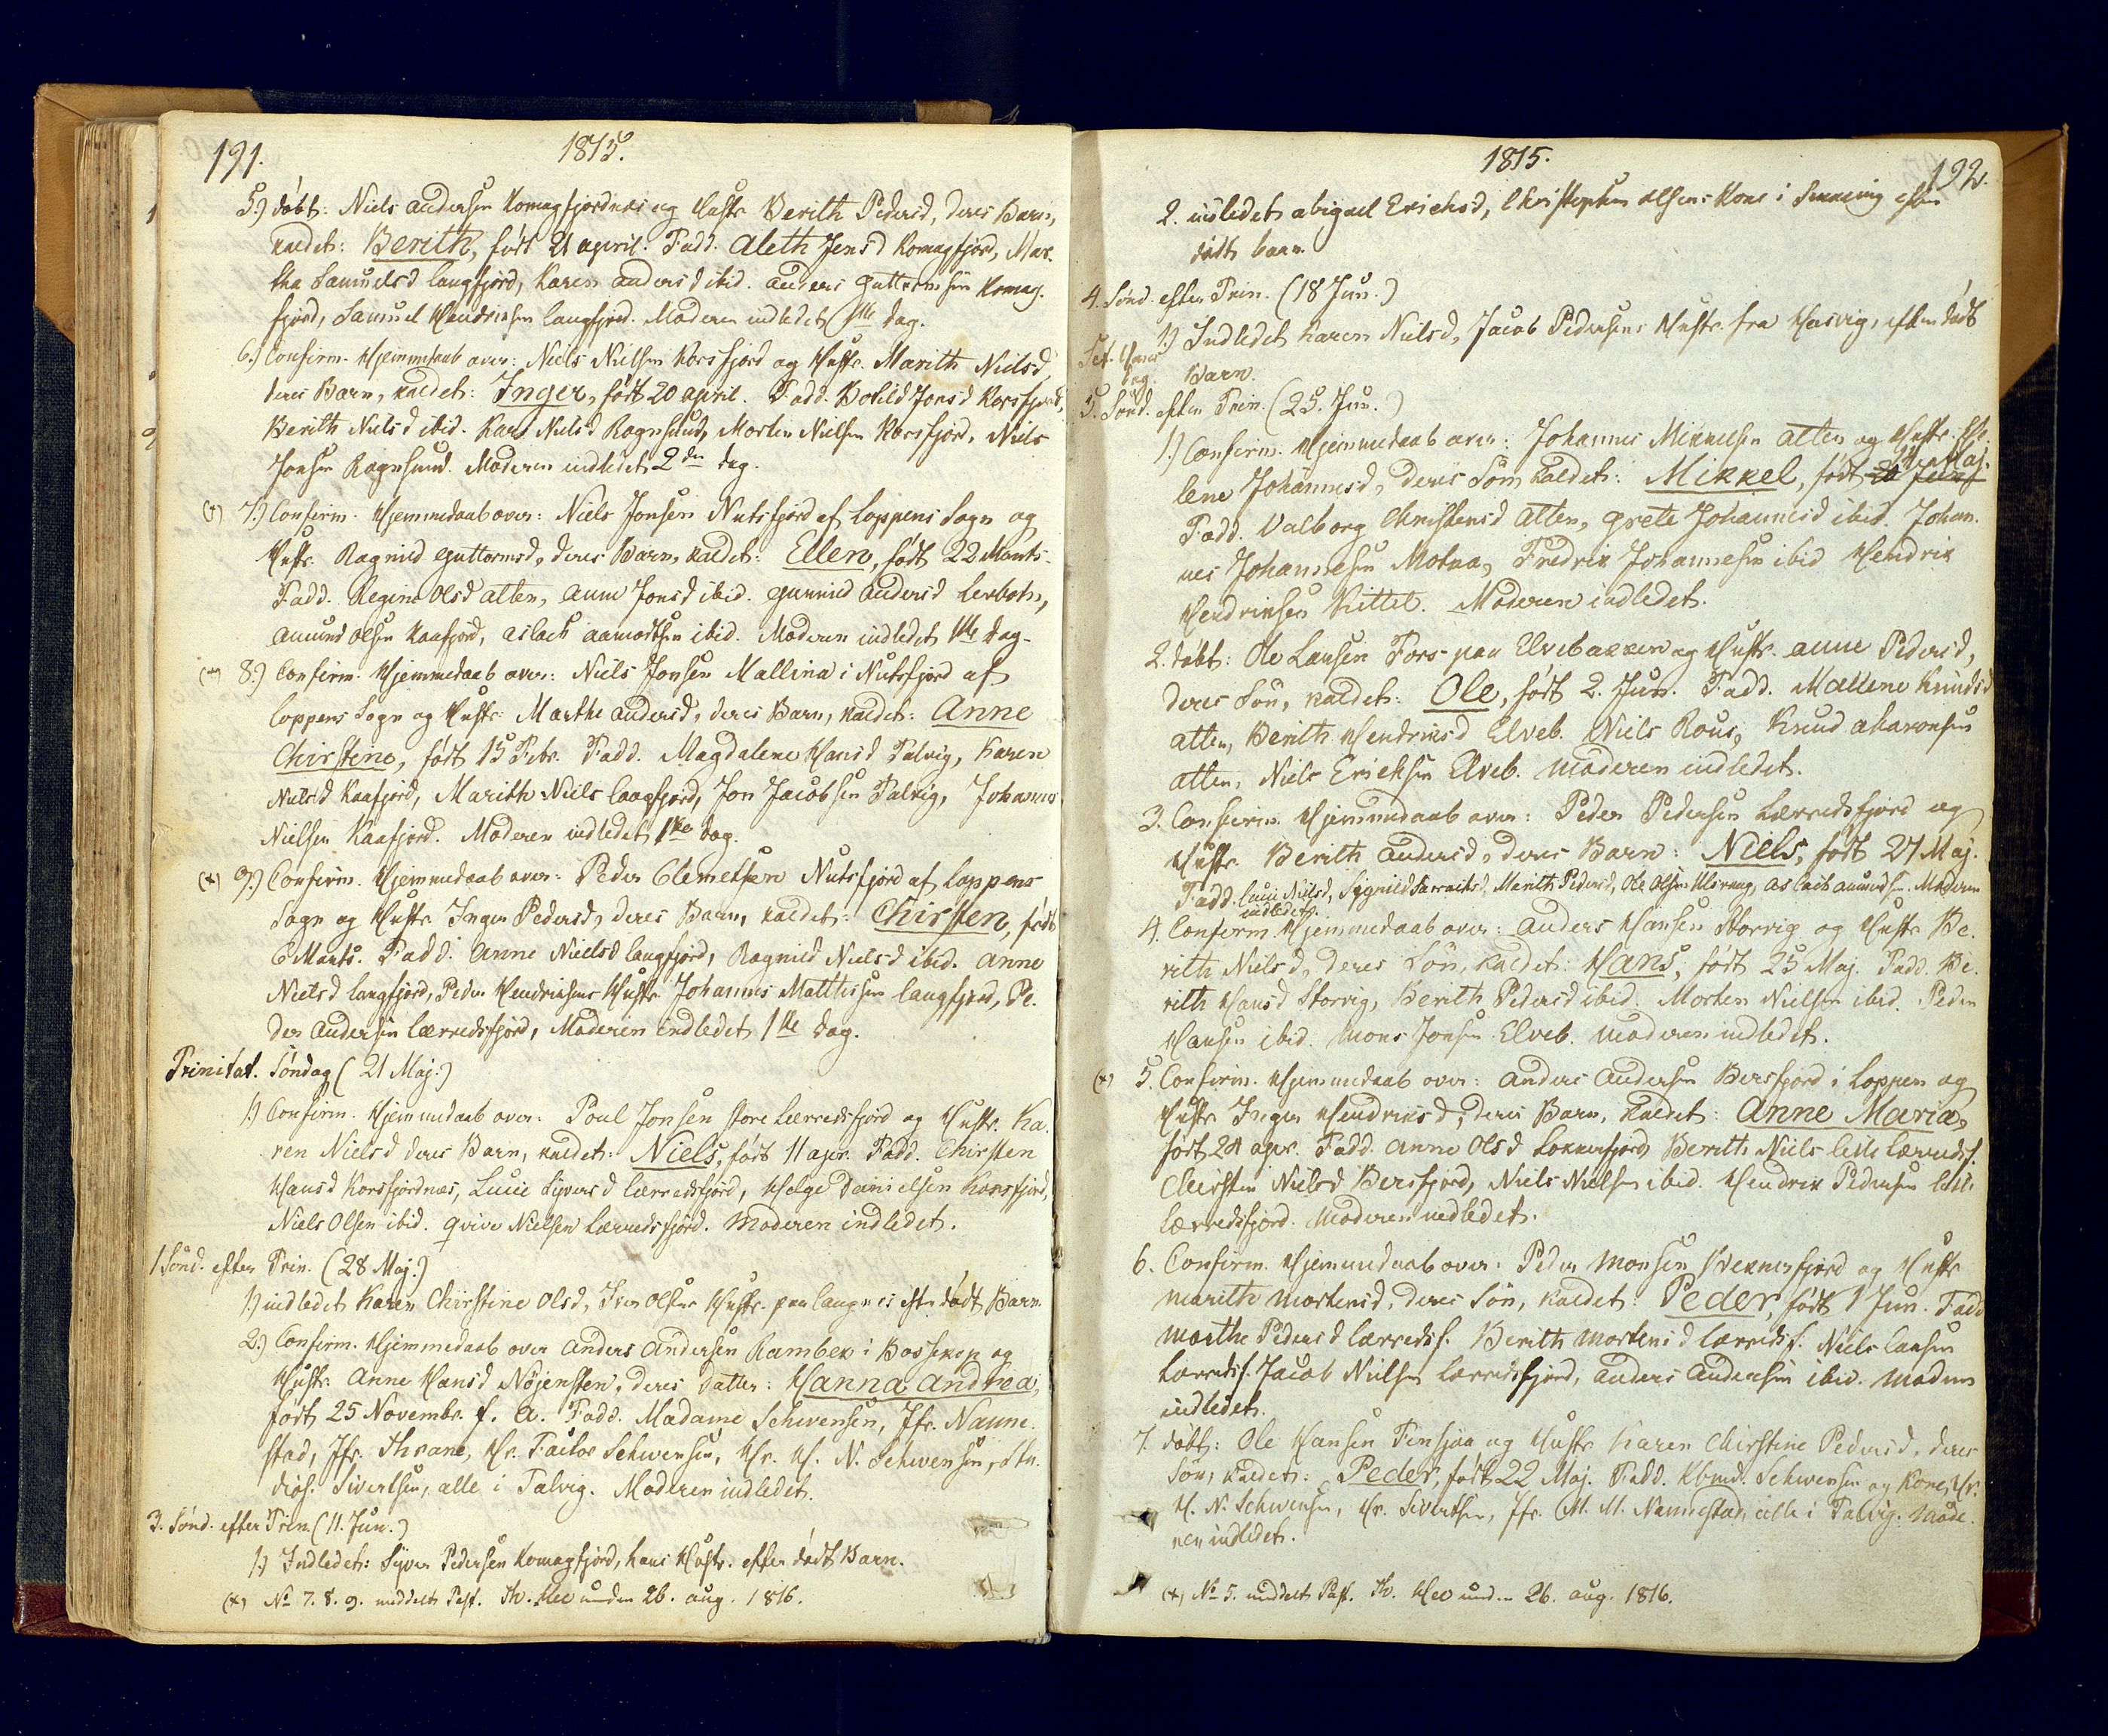 191.
1815.
5.) døbt: Niels Andersen Komagfjordnæs og Hustr. Berith Pedersd, deres Barn,
kaldet: Berith, født 21 April. Fadd. Aleth Jensd Komagfjord, Mar-
tha Samuelsd Langfjord, Karen Andersd ibid. Anders Guttormsen Komag-
fjord, Samuel Hendriksen Langfjord. Moderen indledet dag.
6.) Confirm. Hjemmedaab over: Niels Nielsen Korsfjord og Hustr. Marith Nielsd,
deres Barn, kaldet: Inger, født 20 April. Fadd. Bohild Jonsd Korsfjord,
Berith Nielsd ibid. Kari Nielsd Rognsund, Morten Nielsen Korsfjord, Niels
Jonsen Rognsund. Moderen indledet 2den dag.
(+) 7.) Confirm. Hjemmedaab over: Niels Jonsen Nutsfjord af Loppens Sogn og
Hustr. Ragnild Guttormsd, deres Barn, kaldet: Ellen, født 22 Marts.
Fadd. Regine Olsd Alten, Anne Jonsd ibid. Gunnild Andersd Lerbotn,
Amund Olsen Kaafjord, Aslach Aamodtsen ibid. Moderen indledet 1ste dag.
(+) 8.) Confirm. Hjemmedaab over: Niels Jonsen Mallina i Nutsfjord af
Loppens Sogn og Hustr. Marthe Andersd, deres Barn, kaldet: Anne
Chirstine, født 15 Febr. Fadd. Magdalene Hansd Talvig, Karen
Nielsd Kaafjord, Marith Niels Langfjord, Jon Jacobsen Talvig, Johannes
Nielsen Kaafjord. Moderen indledet 1ste dag.
(+) 9.) Confirm. Hjemmedaab over: Peder Clemetsen Nutsfjord af Loppens
Sogn og Hustr. Inger Pedersd, deres Barn, kaldet: Chirsten, født
6 Marts. Fadd. Anne Nielsd Langfjord, Ragnild Nielsd ibid. Anne
Nielsd Langfjord, Peder Hendriksens Hustr. Johannes Matthisen Langfjord, Pe-
der Andersen Lærredsfjord, Moderen indledet 1ste dag.
Trinitat. Søndag (21 Maj.)
1.) Confirm. Hjemmedaab over: Poul Jonsen store Lerredsfjord og Hustr. Ka-
ren Nielsd deres Barn, kaldet: Niels, født 11 Apr. Fadd. Chirsten
Hansd Korsfjordnæs, Lucie Syversd Lerredsfjord, Helge Danielsen Korsfjord,
Niels Olsen ibid. Qvive Nielsen Lærredsfjord. Moderen indledet.
1 Sønd. efter Trin. (28 Maj.)
1.) indledet Karen Chirstine Olsd, Iver Olsens Hustr. paa Langnes efter dødt Barn.
2.) Confirm. Hjemmedaab over Anders Andersen Rambek i Bossekop og
Hustr. Anne Hansd Nøjensten, deres Datter: Hanna Andrea,
født 25 Novembr. f. A. Fadd. Madame Schwensen, Jfr. Nanne-
stad, Jfr. Thrane, Hr. Factor Schwensen, Hr. H. N. Schwensen, Stu-
dios. Sivertsen, alle i Talvig. Moderen indledet.
3. Sønd. efter Trin. (11. Jun.)
1.) Indledet: Syver Pedersen Komagfjord, hans Hustr. efter dødt Barn.
(+) No 7. 8. 9. meddelt Past. Th. Hee under 26. Aug. 1816.
1815.
192.
2. indledet Abigael Erichsd, Christopher Olsens Kone i efter
dødt barn.
4. Sønd. efter Trin. (18 Jun.)
1.) Indledet Karen Nielsd, Jacob Pedersens Hustr. fra Hasvig, efter dødt
Barn.
Sct. Hans
dag.
5. Sønd. efter Trin. (25. Jun.)
1.) Confirm. Hjemmedaab over: Johannes Mikkelsen Alten og Hustr. Ele-
lene Johannesd, deres Søn kaldet: Mikkel, født Maj.
Fadd. Valborg Christensd Alten, Grete Johannesd ibid. Johan-
nes Johannesen Motka, Fredrik Johannesen ibid Hendrik
Hendriksen Kittel. Moderen indledet.
2. døbt: Ole Larsen Fors paa Elvebakken og Hustr. Anne Pedersd,
deres Søn, kaldet: Ole, født 2. Jun. Fadd. Mallene Knudsd
Alten, Berith Hendriksd Elveb. Niels Rous, Knud Aharonsen
Alten, Niels Ericksen Elveb. Moderen indledet.
3. Confirm. Hjemmedaab over: Peder Pedersen Lærredsfjord og
Hustr. Berith Andersd, deres Barn: Niels, født 27 Maj.
Fadd. Luci Nielsd, Sygnild Marith Pedersd, Ole Olsen Aslach Amundsen. Moderen
indledet.
4. Confirm. Hjemmedaab over: Anders Hansen Storvig og Hustr. Be-
rith Nielsd, deres Søn, kaldet: Hans, født 25 Maj. Fadd. Be-
rith Hansd Storvig, Berith Pedersd ibid. Morten Nielsen ibid. Peder
Hansen ibid. Mons Jonsen Elveb. Moderen indledet.
(+) 5. Confirm. Hjemmedaab over: Anders Andersen Bersfjord i Loppen og
Hustr. Inger Hendriksd, deres Barn, kaldet: Anne Maria,
født 24 Apr. Fadd. Anne Olsd Lokkerfjord Berith Niels lille Lærredsf.
Chirsten Nielsd Bersfjord, Niels Nielsen ibid. Hendrik Pedersen lille
Lærredsfjord. Moderen indledet.
6. Confirm. Hjemmedaab over: Peder Monsen Vekkerfjord og Hustr
Marith Mortensd, deres Søn, kaldet: Peder, født 1 Jun. Fadd
Marthe Pedersd Lærredsf. Berith Mortensd Lærredsf. Niels Larsen
Lærredsf. Jacob Nielsen Lærredsfjord, Anders Andersen ibid. Moderen
indledet.
7. døbt: Ole Hansen Finsjaa og Hustr Karen Chirstine Pedersd, deres
Søn, kaldet: Peder, født 22 Maj. Fadd. Kbmd. Schwensen og Kone, Hr.
H. N. Schwensen, Hr. Sivertsen, Jfr. M. M. Nannestad, alle i Talvig. Mode-
ren indledet.
(+) No 5. meddelt Past. Th. Hee under 26. Aug. 1816.